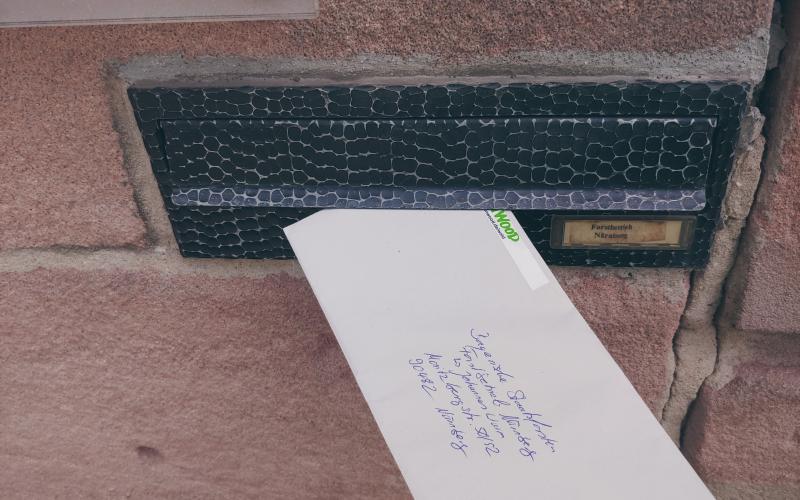 Forstbetrieb
Nürnberg
WOOD
Bayerische Staatsforsten
Forstbetrieb Nürnberg
z.H. Johannes Wurm
Moritzbergstr. 50/52
90482 Nürnberg